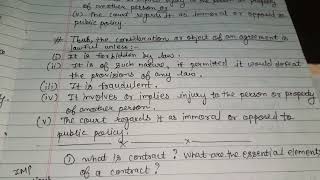 of another person or
(v) The court regards it as immoral or opposed to
public policy.
# Thus, the consideration or object of an agreement is
lawful unless:-
(i) It is forbidden by law.
(ii) It is of such nature, if permitted it would defeat
the provisions of any law.
(iii) It is fraudulent.
(iv) It involves or implies injury to the person or property
of another person.
(v) The court regards it as immoral or opposed to
public policy.
① What is contract? What are the essential elements
IMP of a contract?